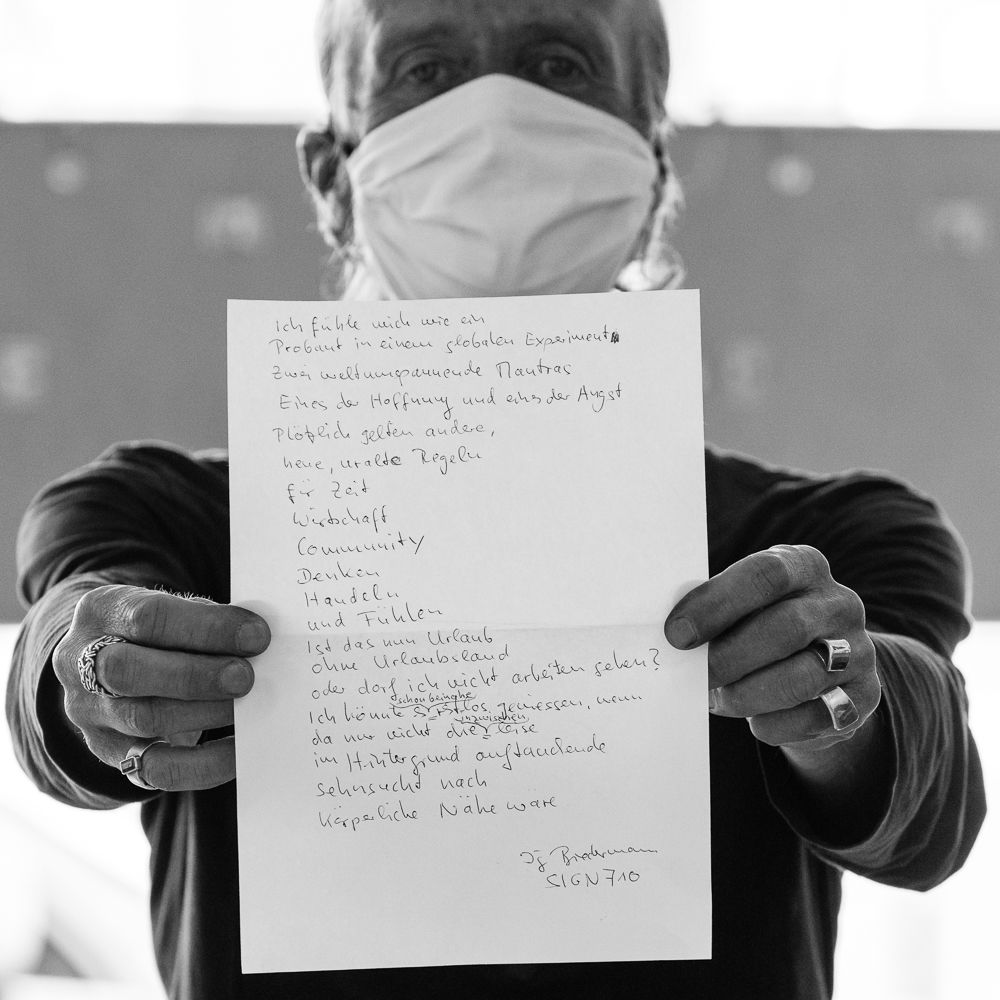 Ich fühle mich wie ein
Probant in einem globalen Experiment
Zwei weltumspannende Mantras
Eines der Hoffnung und eines der Angst
Plötzlich gelten andere,
neue, uralte Regeln
für Zeit
Wirtschaft
Community
Denken
Handeln
und Fühlen
Ist das nun Urlaub
ohne Urlaubsland
oder darf ich nicht arbeiten gehen?
schon beinahe
Ich könnte es los geniessen, wenn
inzwischen
da nur nicht die leise
im Hintergrund auftauchende
sehnsucht nach
Körperliche Nähe wäre
Biedermann
SIGN710